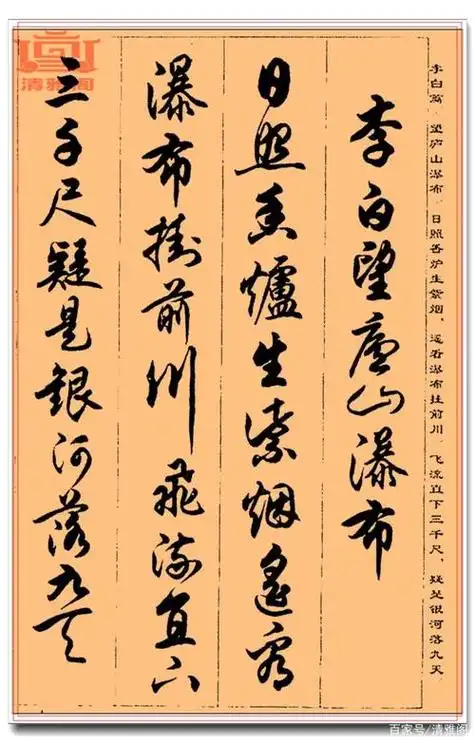 李白 望庐山瀑布、日照香炉生紫烟、遥看瀑布挂前川、飞流直下三千尺、疑是银河落九天、
李白望廬山瀑布
日照香爐生紫烟遙看
瀑布掛前川飛流直下
三千尺疑是銀河落九天
清雅阁
百家号/清雅阁